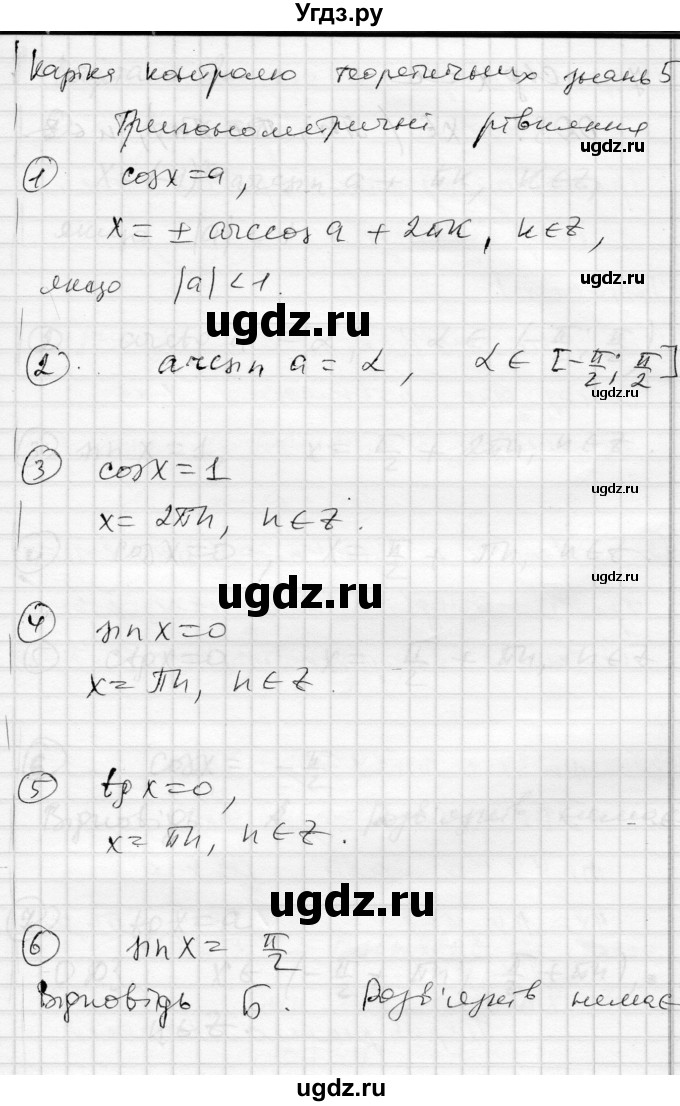 Угдз.ру
Картка контролю теоретичних знань 5
ugdz.ru
Тригонометричні рівняння
ugdz.ru
① cos x = a,
x = ± arccos a + 2πk, k ∈ Z,
ugdz.ru
якщо |a| < 1.
ugdz.ru
ugdz.ru
② arcsin a = α, α ∈ [-π/2; π/2]
ugdz.ru
③ cos x = 1
ugdz.ru
x = 2πn, n ∈ Z.
ugdz.ru
ugdz.ru
④ sin x = 0
ugdz.ru
x = πn, n ∈ Z.
⑤ tg x = 0,
x = πn, n ∈ Z.
ugdz.ru
⑥ sin x = π/2
Відповідь Б. Розв'язків немає
ugdz.ru